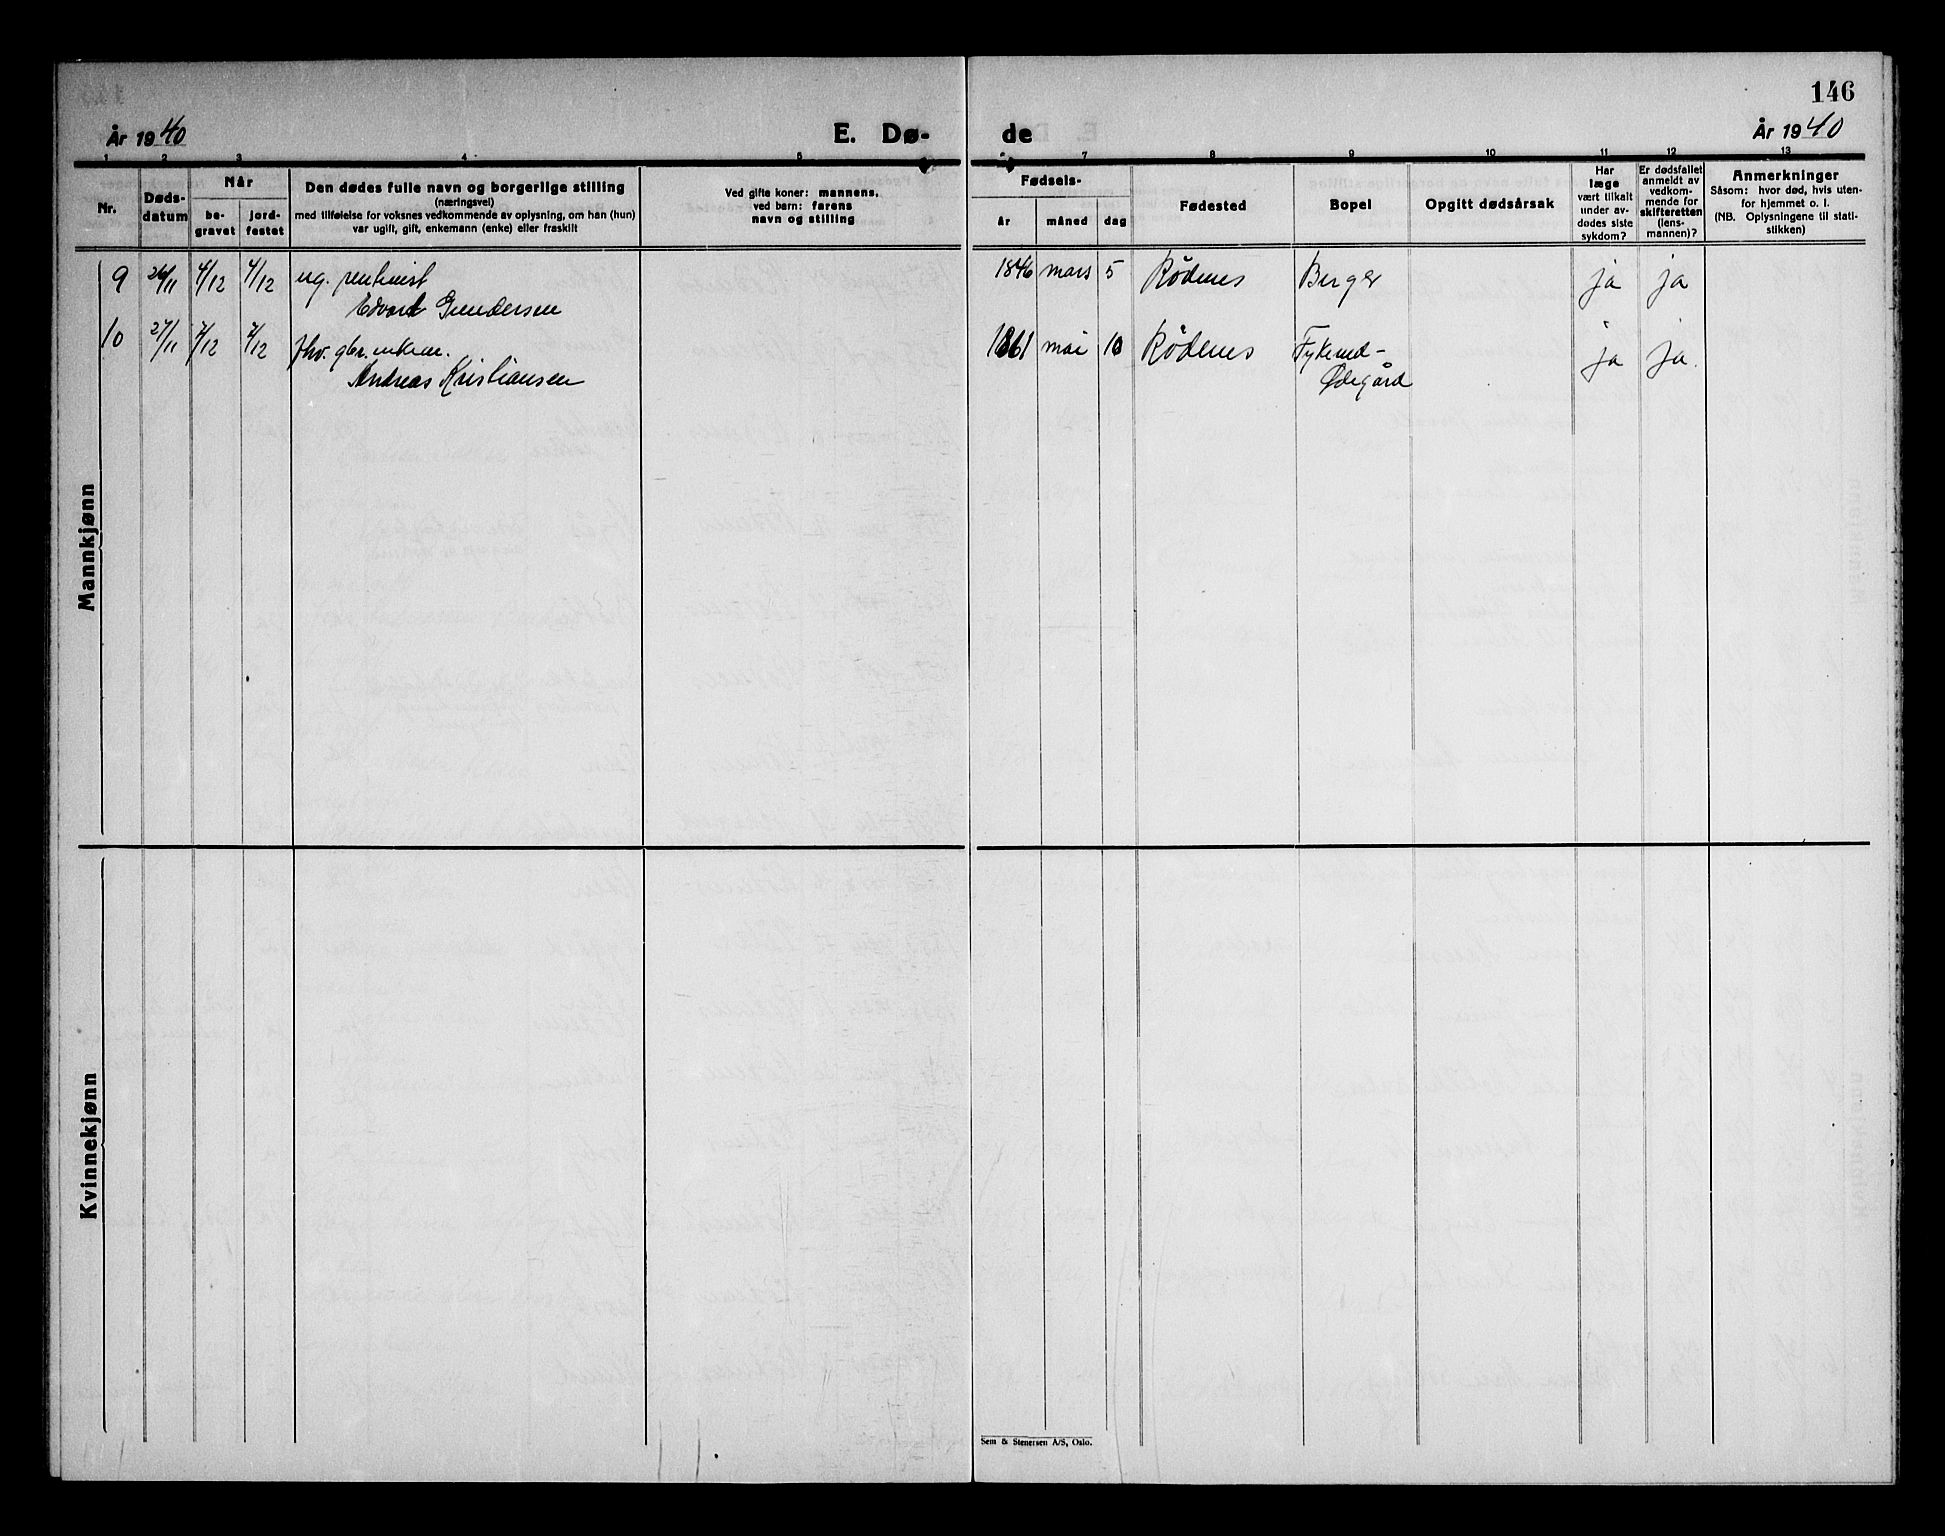 146
År 1940
E. Dø-
de
År 1940
1 2 3 4 5 7 8 9 10 11 12 13
Nr.
Døds-
datum
Når
be-
gravet
jord-
festet
Den dødes fulle navn og borgerlige stilling
(næringsvei)
med tilføielse for voksnes vedkommende av oplysning, om han (hun)
var ugift, gift, enkemann (enke) eller fraskilt
Ved gifte koner: mannens,
ved barn: farens
navn og stilling
Fødsels-
år
måned
dag
Fødested
Bopel
Opgitt dødsårsak
Har
læge
vært tilkalt
under av-
dødes siste
sykdom?
Er dødsfallet
anmeldt av
vedkom-
mende for
skifteretten
(lens-
mannen)?
Anmerkninger
Såsom: hvor død, hvis uten-
for hjemmet o. l.
(NB. Oplysningene til stati-
stikken)
Mannkjønn
9 26/11 4/12 4/12 ug. rentenist 1846 mars 5 Rødenes Berger ja ja
Edvard Gundersen
10 27/11 7/12 7/12 fhv. gbr. enkem. 1861 mai 10 Rødenes Fykerud- ja ja.
Andreas Kristiansen Ødegård
Kvinnekjønn
Sem & Stenersen A/S, Oslo.